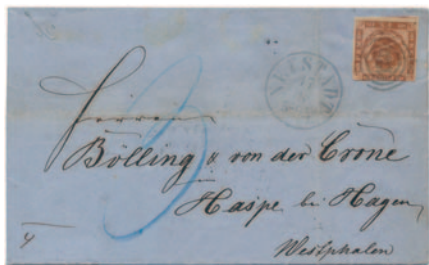 NEUSTADT
Herren
Bölling & von der Crone
Haspe bei Hagen
Westphalen